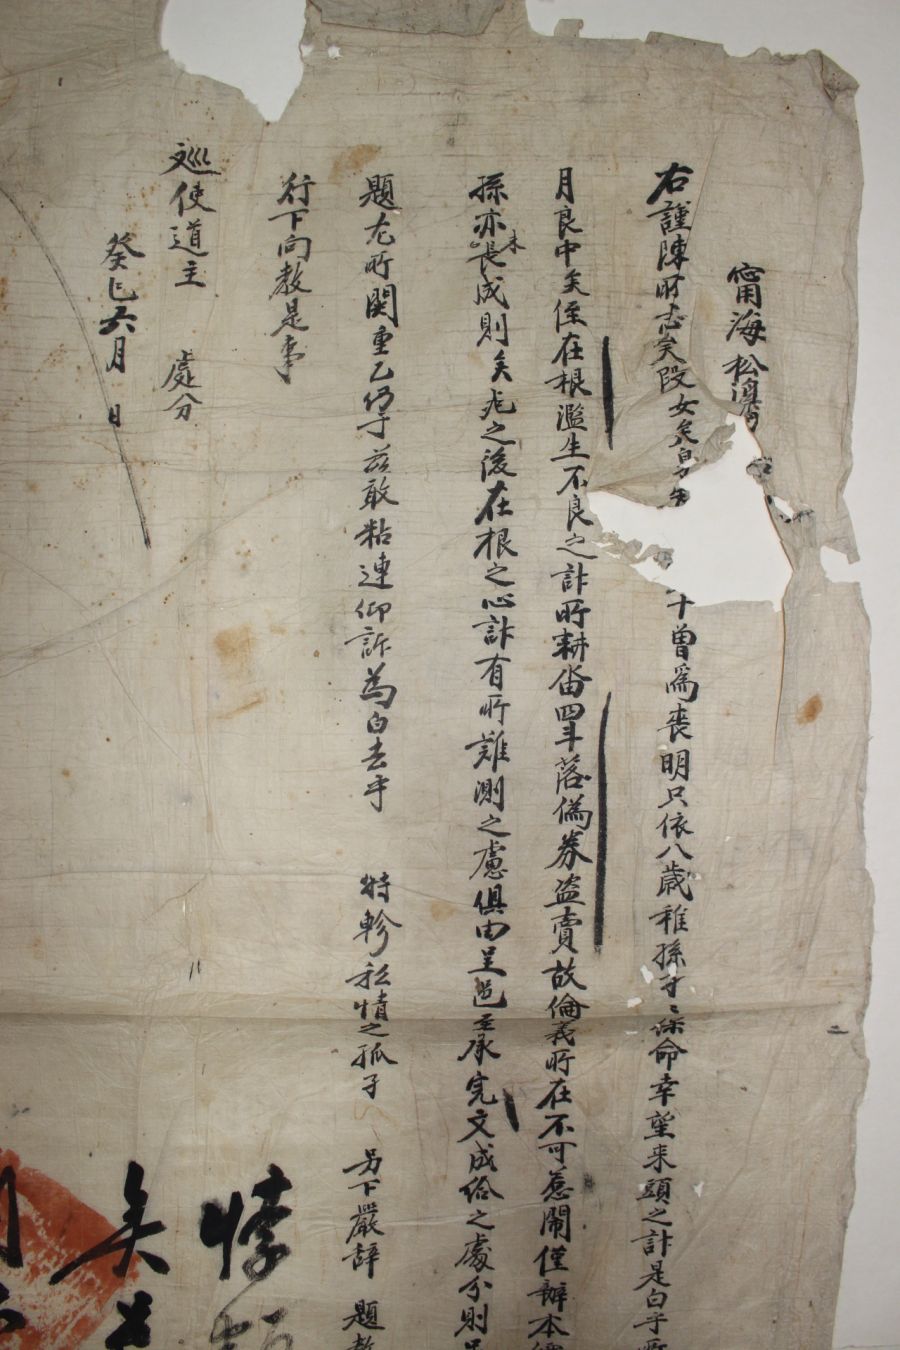 甯海松
右謹陳所志矣段女矣身 十曾爲喪明只依八歲稚孫寸寸保命幸望来頭之計是白乎所
月良中矣侄在根濫生不良之計所耕畓四斗落僞券盜賣故倫義所在不可惹鬧僅辦本
孫亦未長成則矣死之後在根之心計有所難測之慮俱由呈邑至承完文成給之處分則
題尤所関重乙仍于玆敢粘連仰訴爲白去乎 特軫私情之孤孑 另下嚴辞 題教
行下向教是事
巡使道主 處分
癸巳六月 日
悖
矣